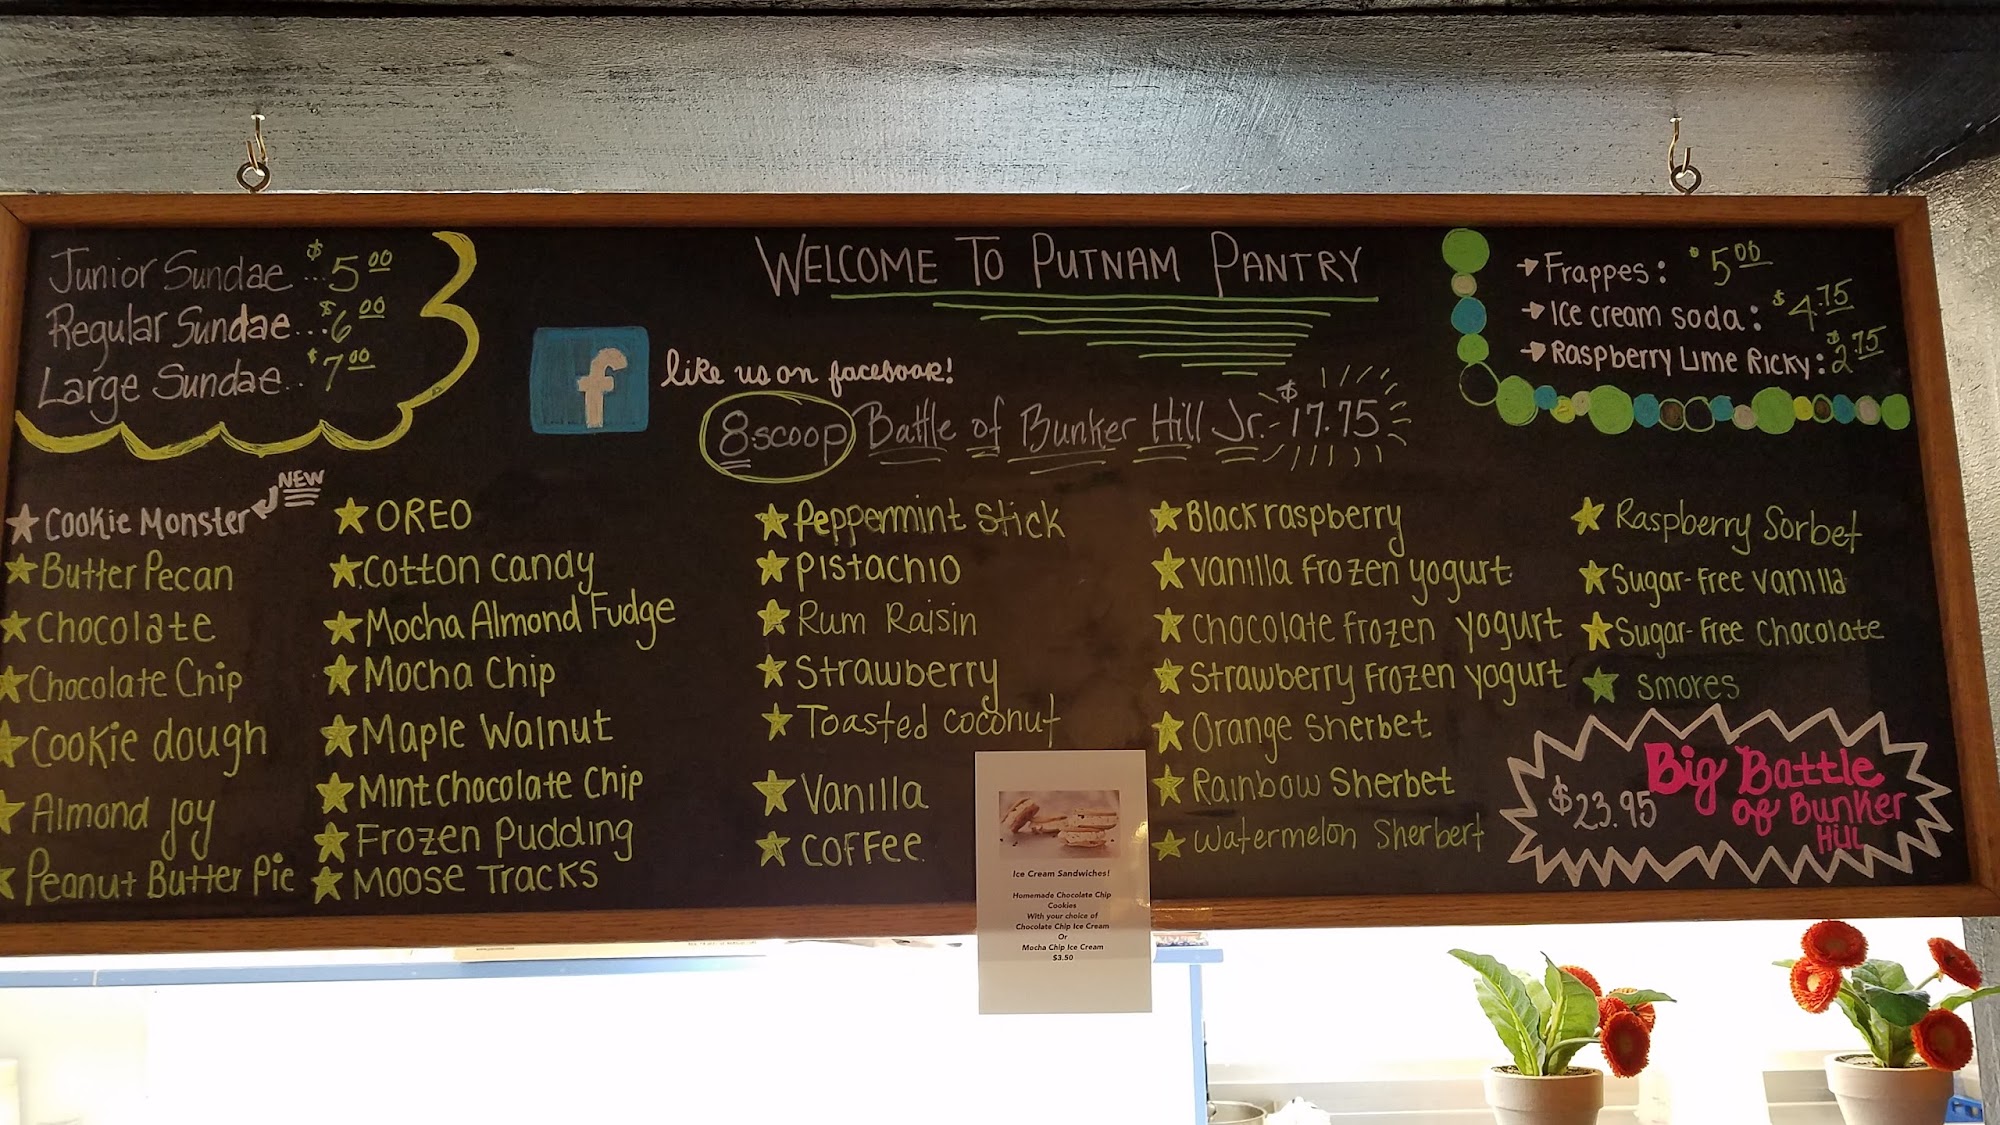 Junior Sundae...$5.00
Regular Sundae...$6.00
Large Sundae..$7.00
WELCOME TO PUTNAM PANTRY
f
like us on facebook!
8-scoop Battle of Bunker Hill Jr. $17.75
Frappes: $5.00
Ice cream soda: $4.75
Raspberry Lime Ricky: $2.75
NEW
Cookie Monster
Butter Pecan
Chocolate
Chocolate Chip
Cookie dough
Almond Joy
Peanut Butter Pie
OREO
Cotton Candy
Mocha Almond Fudge
Mocha Chip
Maple Walnut
Mint Chocolate Chip
Frozen Pudding
Moose Tracks
Peppermint Stick
Pistachio
Rum Raisin
Strawberry
Toasted Coconut
Vanilla
Coffee
Black raspberry
Vanilla Frozen yogurt
Chocolate Frozen yogurt
Strawberry Frozen yogurt
Orange Sherbet
Rainbow Sherbet
Watermelon Sherbert
Raspberry Sorbet
Sugar-Free Vanilla
Sugar-Free Chocolate
Smores
$23.95
Big Battle
of Bunker
Hill
Ice Cream Sandwiches!
Homemade Chocolate Chip
Cookies
With your choice of
Chocolate Chip Ice Cream
Or
Mocha Chip Ice Cream
$3.50